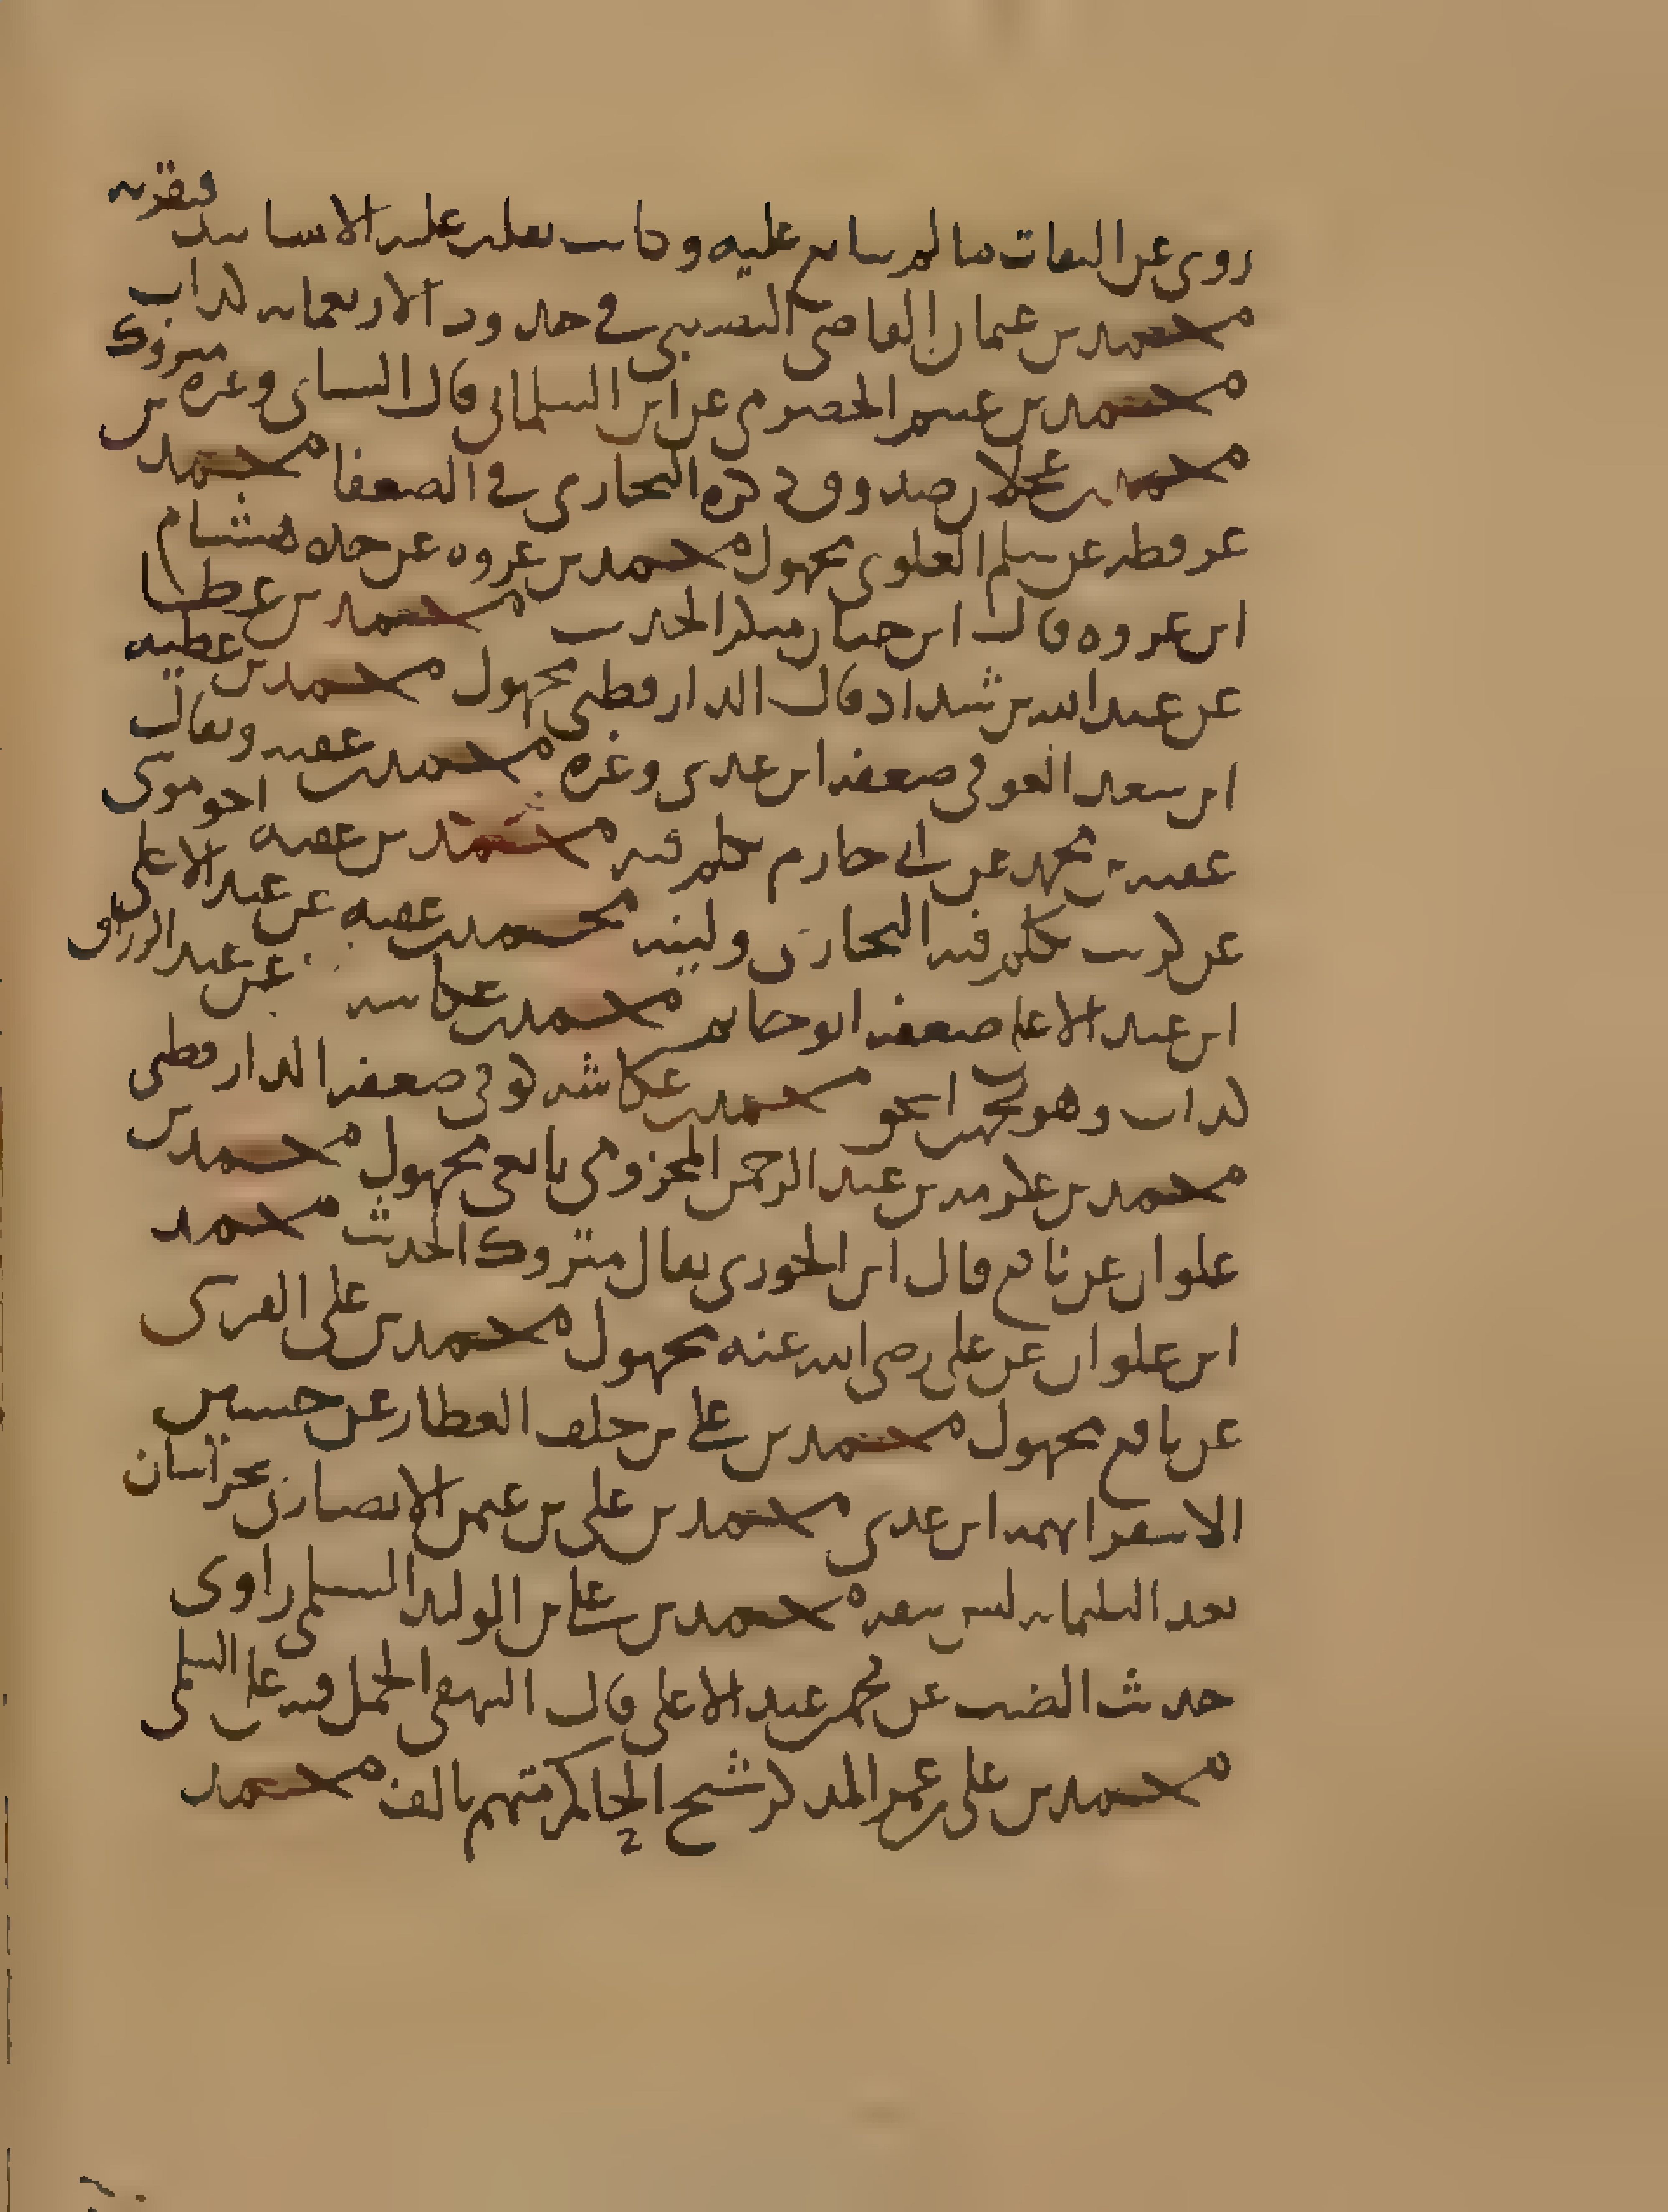 روى عن الثقات ما لم يتابع عليه وكانت تقلب عليه الاسانيد فيقربه
محمد بن عثمان القاضي النصيبي في حدود الاربعمائه كذاب
محمد بن عثيم الحضرمي عن ابن البيلماني قال النسائي وغيره متروك
محمد بن عجلان صدوق ذكره البخاري في الضعفا محمد بن
عرفطه عن سلم العلوي مجهول محمد بن عروه عن جده هشام
ابن عروه قال ابن حبان منكر الحديث محمد بن عطا
عن عبد الله بن شداد قال الدارقطني مجهول محمد بن عطيه
ابن سعد العوفي ضعفه ابن عدي وغيره محمد بن عقبه ويقال
عقبه بن محمد عن ابي حازم تكلم فيه محمد بن عقبه اخو موسى
عن كريب تكلم فيه البخاري ولينه محمد بن عقبه عن عبد الاعلى
ابن عبد الاعلى ضعفه ابو حاتم محمد بن عكاشه عن عبد الرزاق
كذاب وهو محمد بن اسحق محمد بن عكاشه كوفي ضعفه الدارقطني
محمد بن عكرمه بن عبد الرحمن المخزومي تابعي مجهول محمد بن
علوان عن نافع قال ابن الجوزي يقال متروك الحديث محمد
ابن علوان عن علي رضي الله عنه مجهول محمد بن علي القرشي
عن نافع مجهول محمد بن علي بن خلف العطار عن حسين
الاشقر اتهمه ابن عدي محمد بن علي بن عمر الانصاري بخراسان
بعد الثلثمايه ليس بثقه محمد بن علي بن الوليد السلمي راوي
حديث الضب عن محمد بن عبد الاعلى قال البيهقي الحمل فيه على السلمي
محمد بن علي بن عمر المذكر شيخ الحاكم متهم تالف محمد